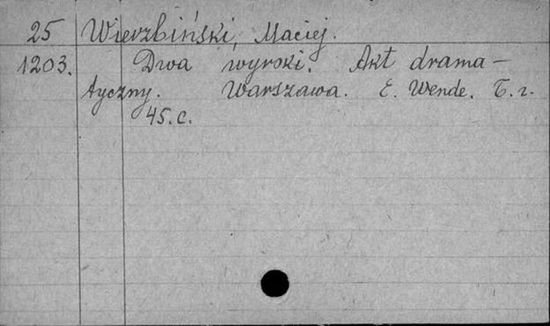 25 Wierzbiński, Maciej.
1203. Dwa wyroki. Akt drama-
tyczny. Warszawa. E. Wende. Б. г.
45. с.